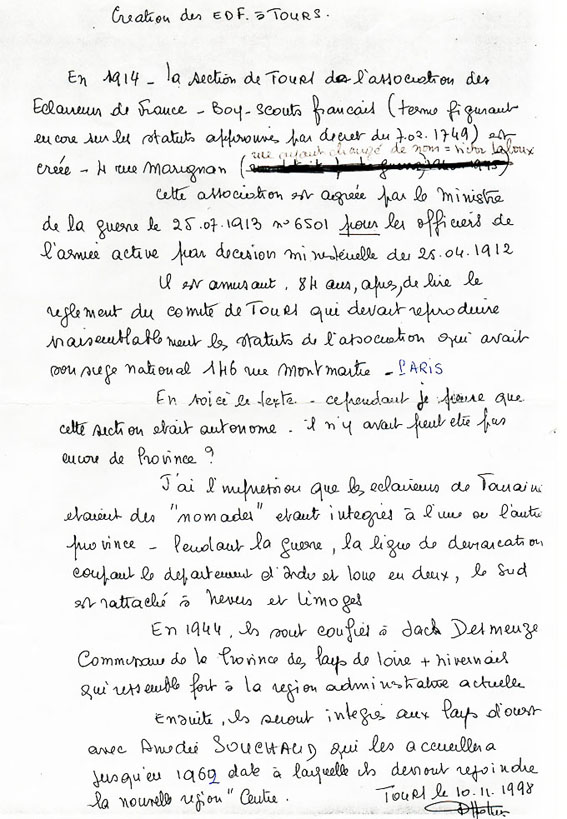 Creation des EDF. à TOURS.
En 1914 - la section de TOURS de l'association des
Eclaireurs de France - Boy-Scouts français (terme figurant
encore sur les statuts approuvés par decret du 7.02.1749) est
créée - 4 rue Marignan (
rue ayant changé de nom = Victor Laloux
Cette association est agréée par le Ministre
de la guerre le 25.07.1913 n° 6501 pour les officiers de
l'armée active par decision ministérielle du 25.04.1912
Il est amusant, 84 ans, apres, de lire le
reglement du comité de TOURS qui devait reproduire
vraisemblablement les statuts de l'association qui avait
son siege national 146 rue Montmartre - PARIS
En voici le texte - cependant je pense que
cette section etait autonome. il n'y avait peut etre pas
encore de Province ?
J'ai l'impression que les eclaireurs de Touraine
etaient des "nomades" etant integrés à l'une ou l'autre
province - Pendant la guerre, la ligne de demarcation
coupant le departement d'Indre et Loire en deux, le Sud
est rattaché à Nevers et Limoges
En 1944, ils sont confiés à Jack Desmeuze
Commissaire de la Province des Pays de Loire + Nivernais
qui ressemble fort à la region administrative actuelle
Ensuite, ils seront integrés aux Pays d'ouest
avec Amedée SOUCHAUD qui les accueillera
jusqu'en 1962 date à laquelle ils devront rejoindre
la nouvelle region "Centre.
TOURS le 10.11.1998